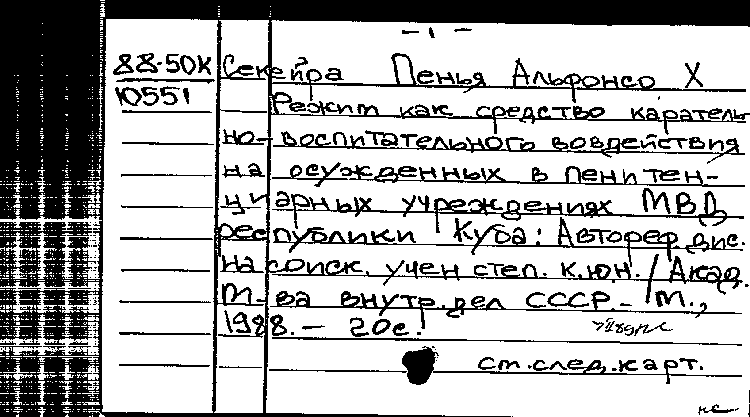 - 1 -
88-50К Секейра Пенья Альфонсо Х
10551 Режим как средство каратель
но-воспитательного воздействия
на осужденных в пенитен-
циарных учреждениях МВД
республики Куба: Автореф. дис.
на соиск. учен степ. к.ю.н. / Акад.
М-ва внутр.дел СССР. - М.,
1988. - 20с.
ст.след.карт.
нс